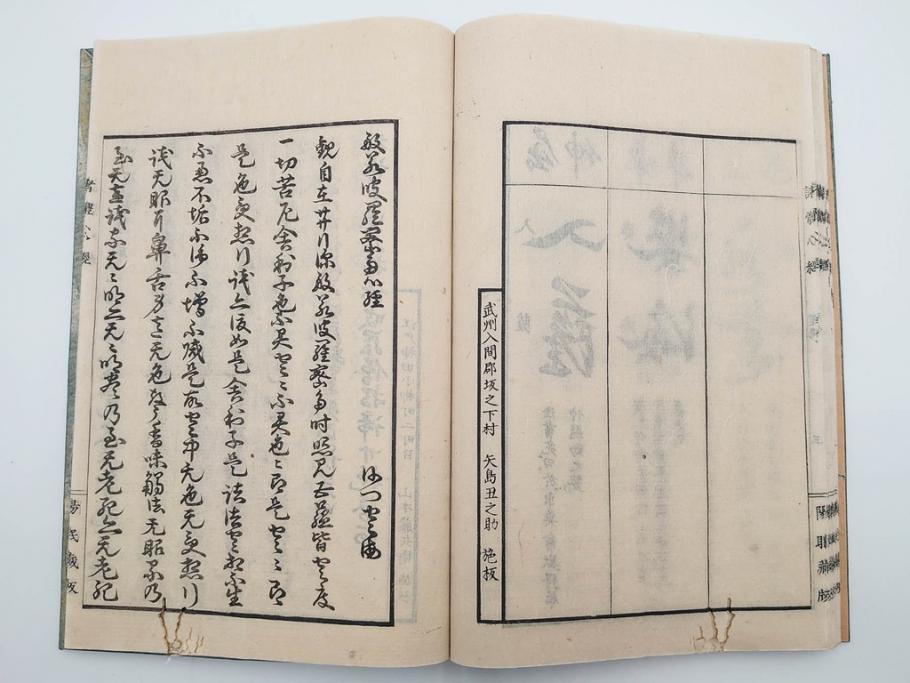 武州入間郡坂之下村 矢島丑之助 施板
般若波羅蜜多心経 沙門空海
観自在菩薩行深般若波羅蜜多時照見五蘊皆空度
一切苦厄舎利子色不異空々不異色々即是空々即
是色受想行識亦復如是舎利子是諸法空相不生
不滅不垢不浄不増不減是故空中无色无受想行
識无眼耳鼻舌身意无色声香味觸法无眼界乃
至无意識界无々明亦无々明尽乃至无老死亦无老死